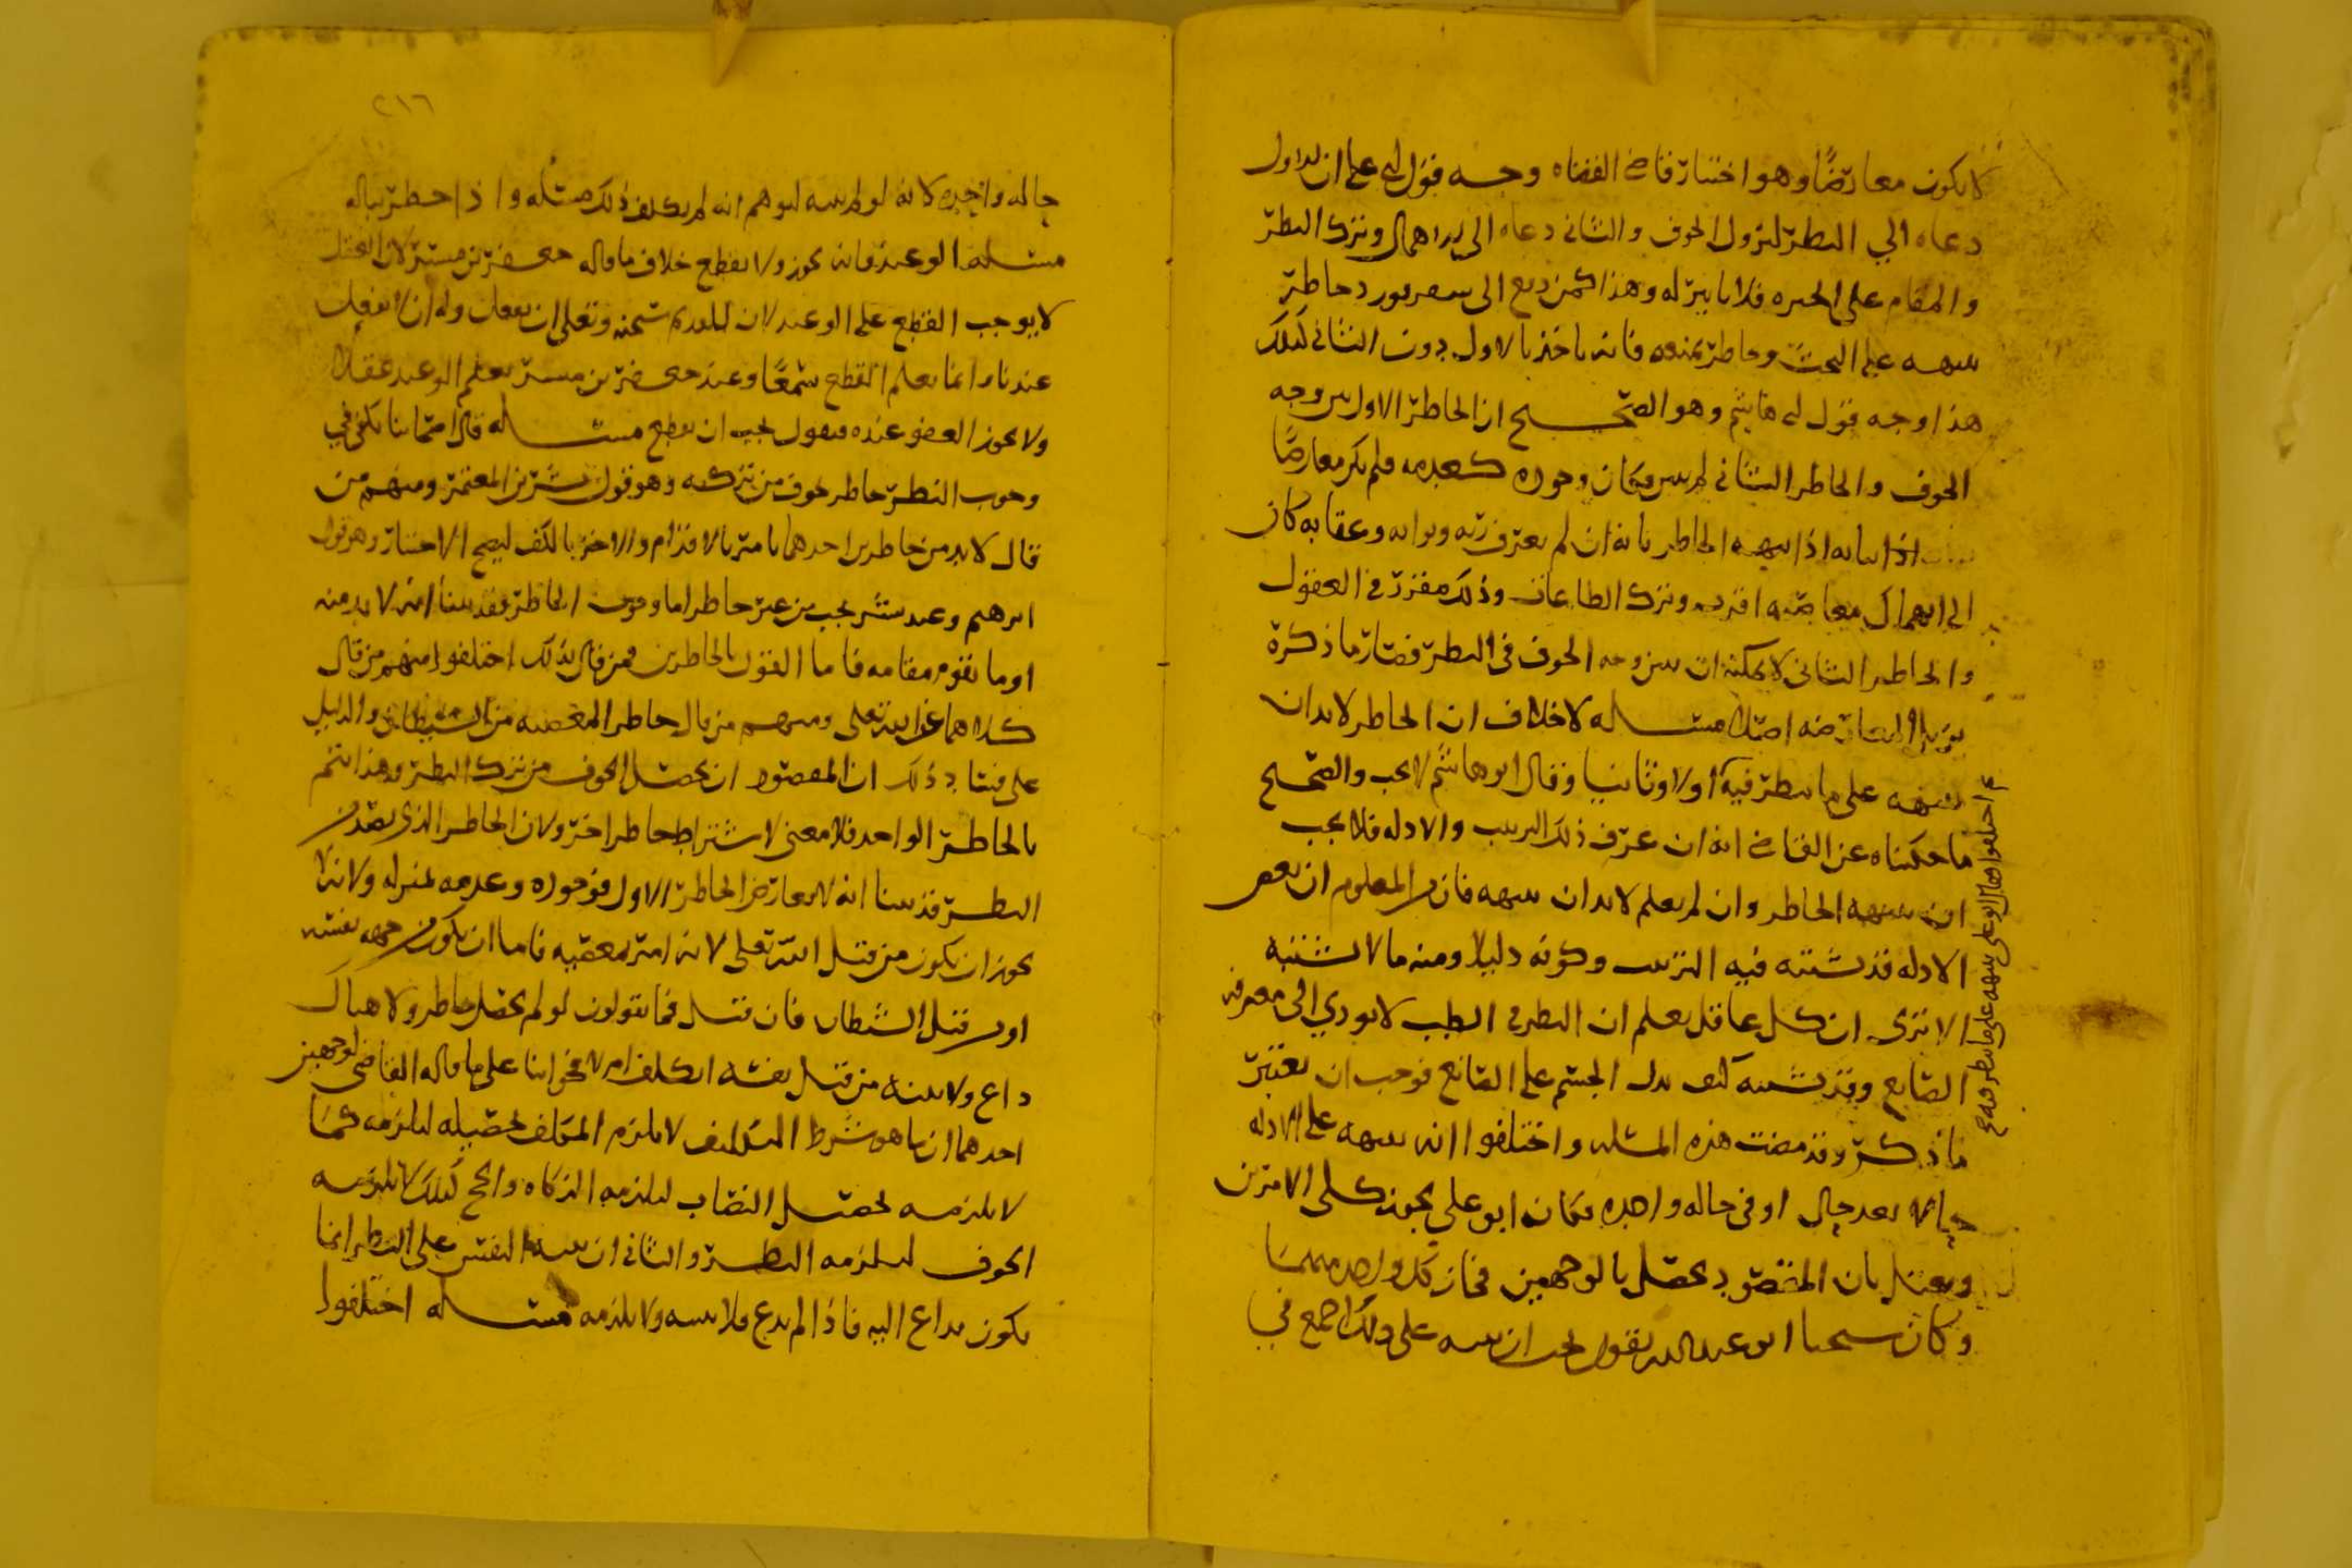 لا يكون معارضًا وهو اختيار قاضي القضاه وجه قول ابي علي ان الاول
دعاه الي النظر لنزول الخوف والثاني دعاه الى الاهمال وترك النظر
والمقام على الحيره فلا تاثير له وهذا كمن دفع الى سفر فورد خاطر
ينبهه على البحث وخاطر يمنعه فانه ياخذ بالاول دون الثاني كذلك
هذا وجه قول ابي هاشم وهو الصحيح ان الخاطر الاول بين وجه
الخوف والخاطر الثاني لم يبين فكان وجوده كعدمه فلم يكن معارضًا
اذا نبهه الخاطر بانه ان لم يعرف ربه وثوابه وعقابه كان
الى اهمال معاصيه اقرب وترك الطاعات وذلك مقرر في العقول
والخاطر الثاني لا يمكنه ان يبين وجه الخوف في النظر فصار ما ذكره
يزيل المعارضه اصلا مسـاله لا خلاف ان الخاطر لابد ان
ينبهه على ما ينظر فيه اولا وثانيا وقال ابو هاشم لا يجب والصحيح
ما حكيناه عن القاضي انه ان عرف ذلك الترتيب والادله فلا يجب
ان ينبهه الخاطر وان لم يعلم لابد ان ينبهه فان المعلوم ان بعض
الادله قد يشتبه فيه الترتيب وكونه دليلا ومنه ما لا يشتبه
الا ترى ان كل عاقل يعلم ان النظر في الطب لا يودي الى معرفه
الصانع وقد يشتبه كيف يدل الجسم على الصانع فوجب ان يعتبر
ما ذكر وقد مضت هذه المسئله واختلفوا انه ينبهه على الادله
حالا بعد حال او في حاله واحده فكان ابو علي يجوز كلي الامرين
ويعتل بان المقصود يحصل بالوجهين فجاز كل واحد منهما
وكان شيخنا ابو عبدالله يقول يجب ان ينبه على ذلك اجمع في
اختلفوا هل ينبهه على ما ينظر فيه
٢١٦
حاله واحده لانه لو لم ينبه لتوهم انه لم يكلف ذلك مسئله واذا خطر بباله
مسئله الوعيد فانه يجوز ولا يقطع خلاف ما قاله جعفر بن مبشر لان العقل
لا يوجب القطع على الوعيد لان للقديم سبحنه وتعلى ان يفعل وله ان لا يفعل
عندنا وانما يعلم القطع سمعًا وعند جعفر بن مبشر يعلم الوعيد عقلا
ولا يجوز العفو عنده فيقول يجب ان يقطع مسـاله قال اصحابنا يكفي في
وجوب النظر خاطر يخوف من تركه وهو قول بشر بن المعتمر ومنهم من
قال لابد من خاطرين احدهما يامر بالاقدام والاخر بالكف ليصح الاختيار وهو قول
ابرهيم وعند بشر يجب من غير خاطر اما وجوب الخاطر فقد بينا انه لابد منه
او ما يقوم مقامه فاما القول بالخاطرين فمن قال بذلك اختلفوا منهم من قال
كلاهما من الله تعلى ومنهم من قال خاطر المعصيه من الشيطان والدليل
على فساد ذلك ان المقصود ان يحصل الخوف من ترك النظر وهذا يتم
بالخاطر الواحد فلا معنى لاشتراط خاطر اخر ولان الخاطر الذي يصد عن
النظر قد بينا انه لا يعارض الخاطر الاول فوجوده وعدمه بمنزله ولانه لا
يجوز ان يكون من قبل الله تعلى لانه امر بمعصيه فاما ان يكون من جهه نفسه
او من قبل الشيطان فان قيل فما تقولون لو لم يحصل خاطر ولا هناك
داع ولا ينبه من قبل نفسه ايكلف ام لا فجوابنا على ما قاله القاضي لوجهين
احدهما ان ما هو شرط التكليف لا يلزم المكلف تحصيله ليلزمه كما
لا يلزمه تحصيل النصاب ليلزمه الزكاه والحج كذلك لا يلزمه
الخوف ليلزمه النظر والثاني ان تنبيه النفس على النظر انما
يكون بداع اليه فاذا لم يدع فلا ينبه ولا يلزمه مسـاله اختلفوا